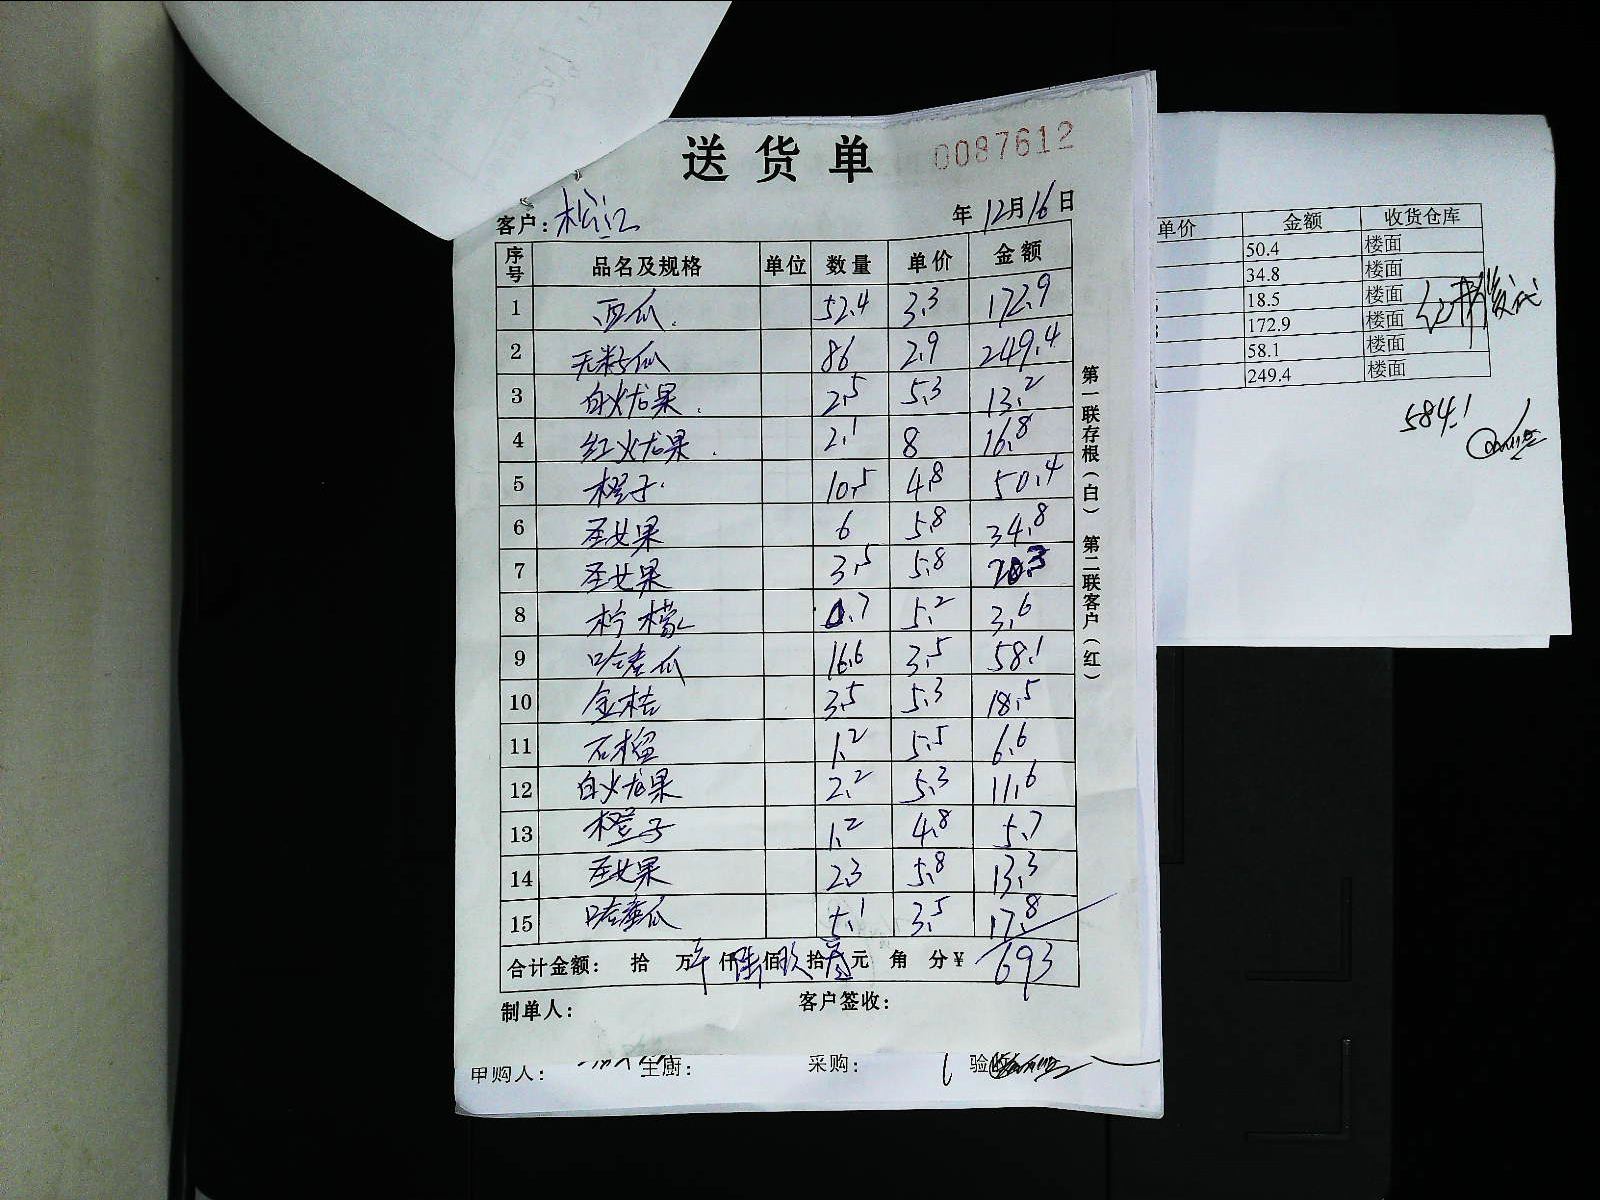 送货单 0087612
客户: 松江 年12月16日
序号 品名及规格 单位 数量 单价 金额
1 西瓜 52.4 3.3 172.9
2 无籽瓜 86 2.9 249.4
3 白火龙果 2.5 5.3 13.2
4 红火龙果 2.1 8 16.8
5 橙子 10.5 4.8 50.4
6 圣女果 6 5.8 34.8
7 圣女果 3.5 5.8 20.3
8 柠檬 0.7 5.2 3.6
9 哈蜜瓜 16.6 3.5 58.1
10 金桔 3.5 5.3 18.5
11 石榴 1.2 5.5 6.6
12 白火龙果 2.2 5.3 11.6
13 橙子 1.2 4.8 5.7
14 圣女果 2.3 5.8 13.3
15 哈蜜瓜 5.1 3.5 17.8
合计金额: 拾 万 仟 陆佰 玖拾 叁元 角 分¥ 693
制单人: 客户签收:
第一联存根(白) 第二联客户(红)
申购人: 主厨: 采购: 验
单价 金额 收货仓库
50.4 楼面
34.8 楼面
18.5 楼面
172.9 楼面
58.1 楼面
249.4 楼面
584.1